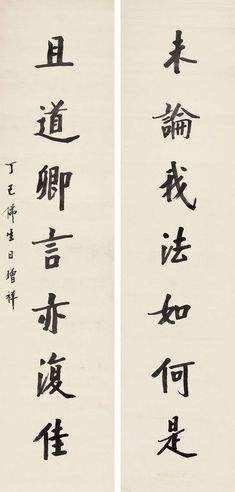 未論我法如何是
且道卿言亦復佳
丁巳佛生日增祥